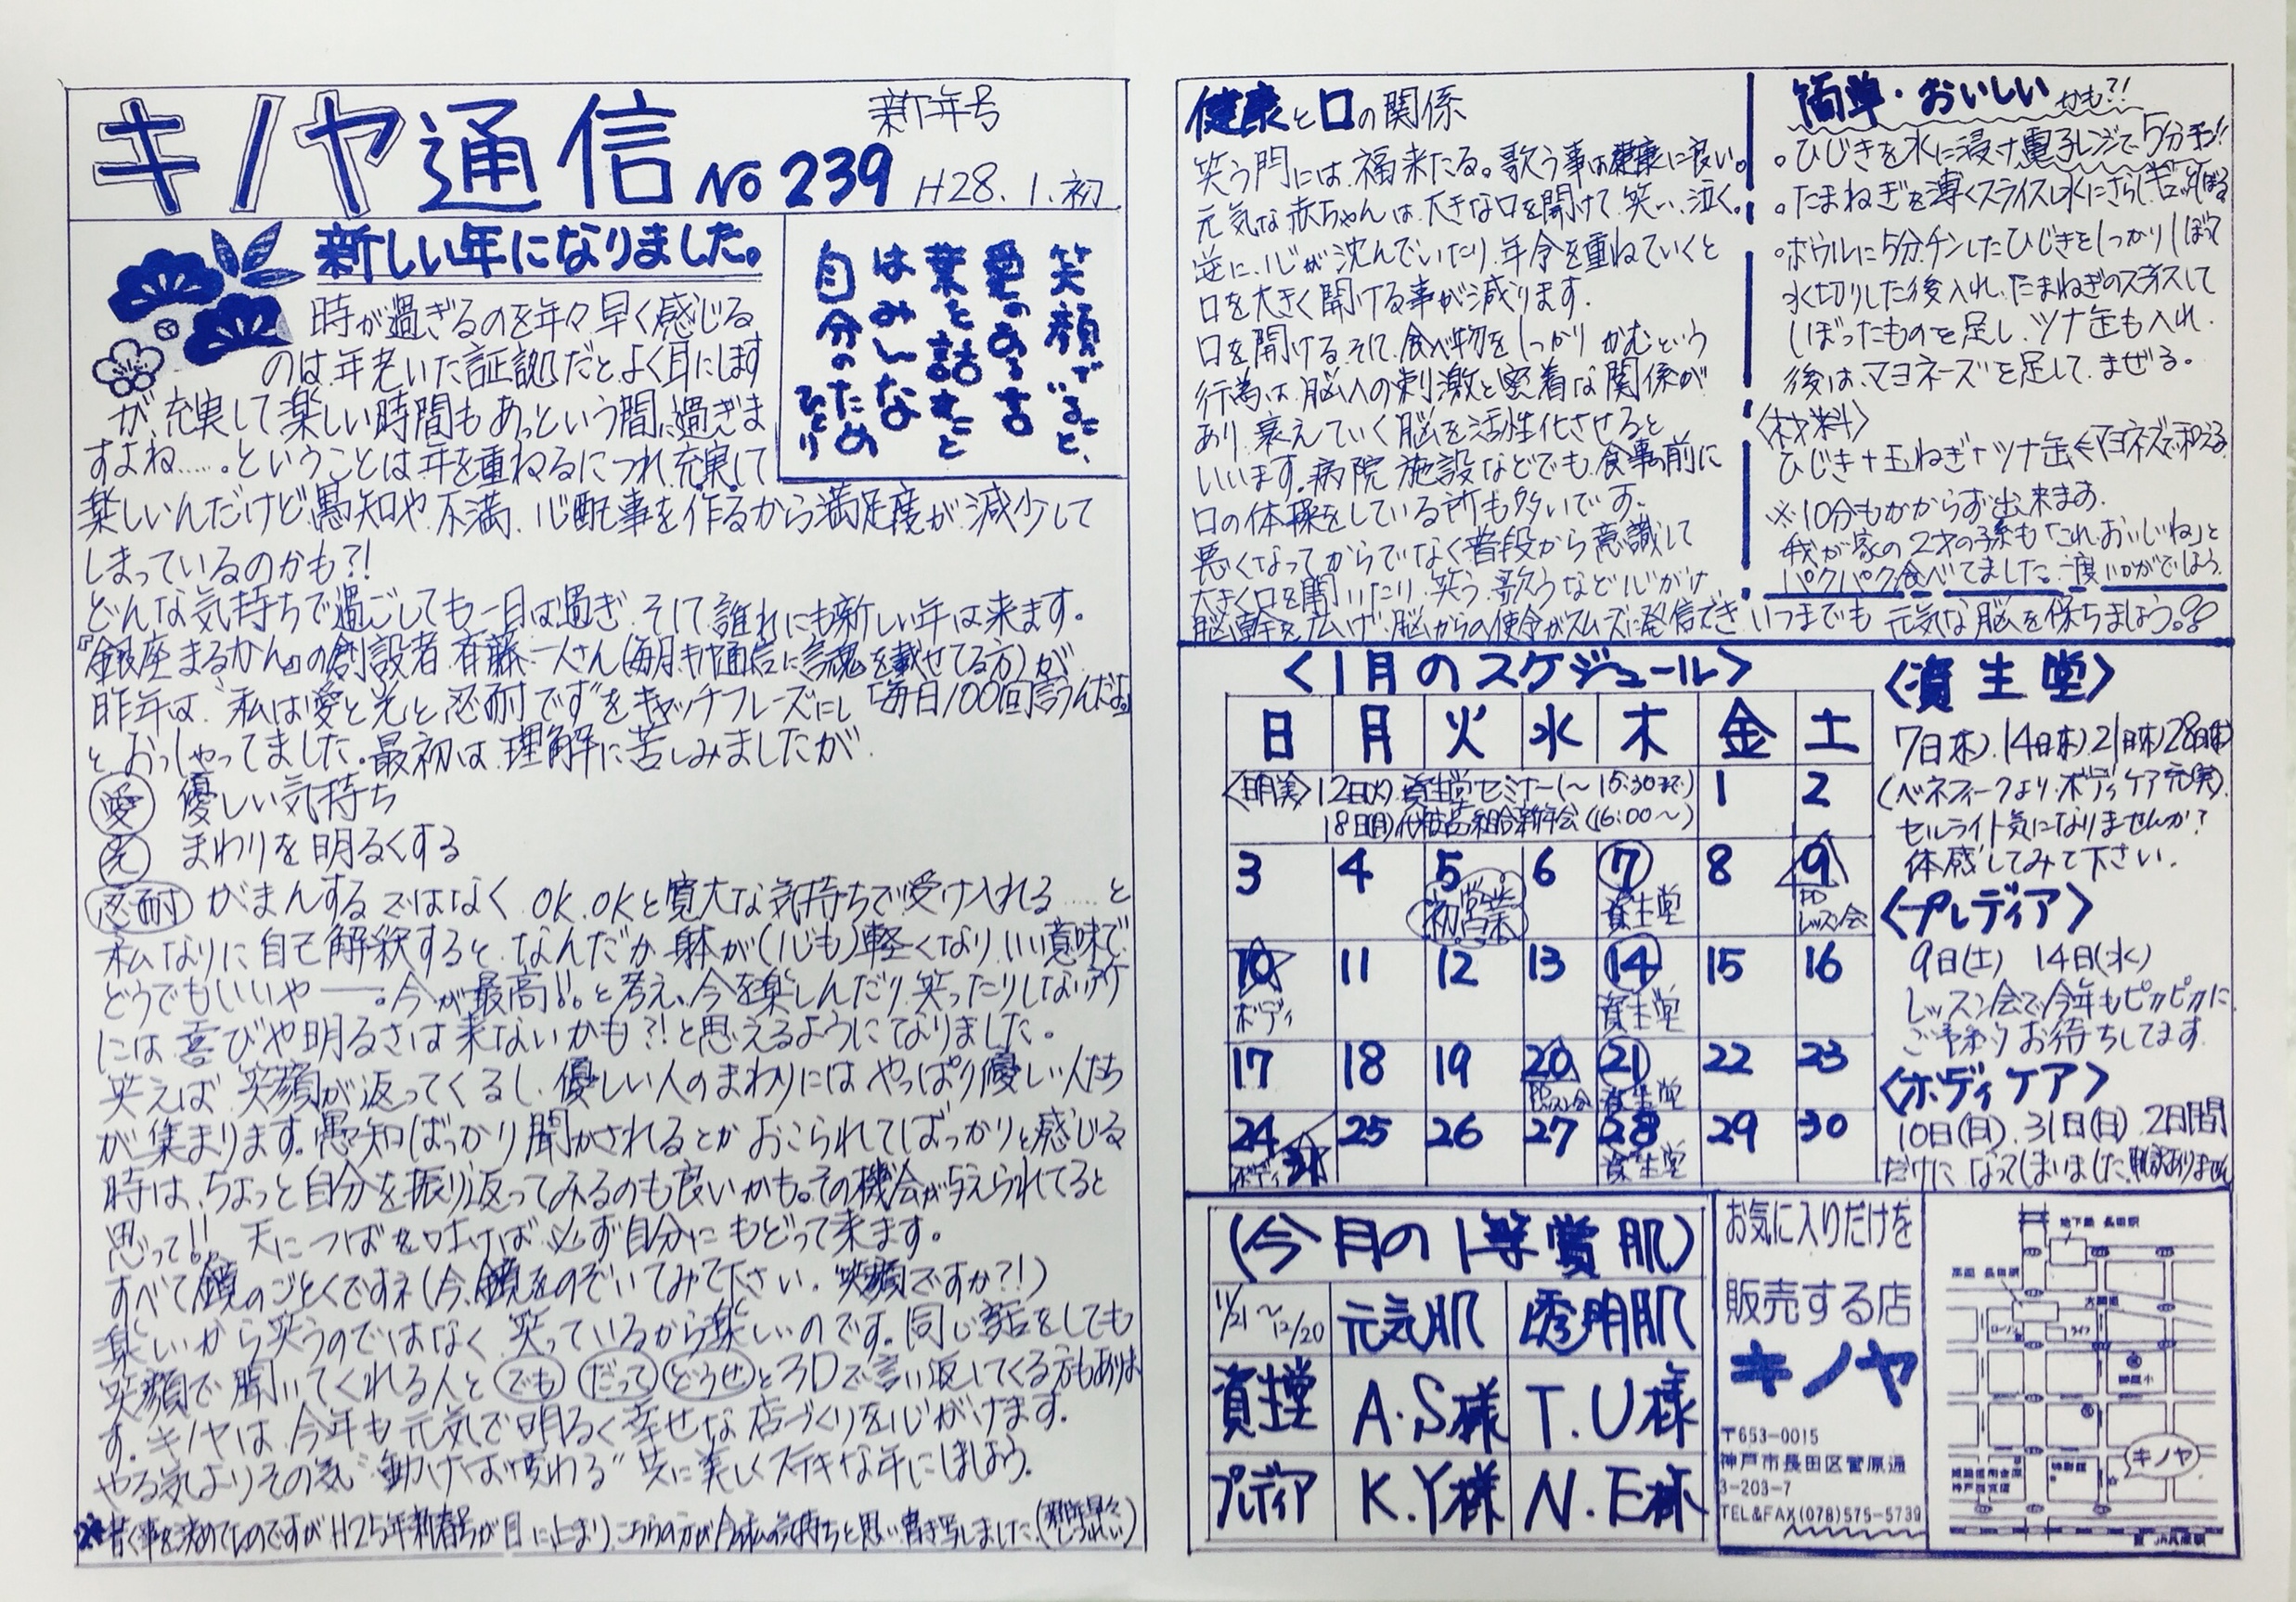 キノヤ通信 No 239
新年号
H28.1.初
新しい年になりました。
時が過ぎるのを年々早く感じる
のは、年老いた証拠だとよく耳にします
が、充実して楽しい時間もあっという間に過ぎま
すよね……。ということは年を重ねるにつれ充実して
楽しいんだけど、愚知や、不満、心配事を作るから満足度が減少して
しまっているのかも?!
どんな気持ちで過ごしても一日は過ぎ、そして誰れにも新しい年は来ます。
『銀座まるかん』の創設者 斉藤一人さん(毎月キノヤ通信に言魂を載せてる方)が
昨年は、"私は愛と光と忍耐です"をキャッチフレーズにし「毎日100回言うんだよ」
とおっしゃってました。最初は、理解に苦しみましたが、
愛 優しい気持ち
光 まわりを明るくする
忍耐 がまんするではなく、OK、OKと寛大な気持ちで受け入れる……と
私なりに自己解釈すると、なんだか身体が(心も)軽くなり、いい意味で、
どうでもいいや——。今が最高!!。と考え、今を楽しんだり、笑ったりしない所
には喜びや明るさは来ないかも?!と思えるようになりました。
笑えば、笑顔が返ってくるし、優しい人のまわりにはやっぱり優しい人たち
が集まります。愚知ばっかり聞かされるとか、おこられてばっかりと感じる
時は、ちょっと自分を振り返ってみるのも良いかも。その機会が与えられてると
思って!! 天につばを吐けば必ず自分にもどって来ます。
すべて鏡のごとくですネ(今、鏡をのぞいてみて下さい。笑顔ですか?!)
楽しいから笑うのではなく、笑っているから楽しいのです。同じ話をしても
笑顔で聞いてくれる人と でも だって どうせ と3Dで言い返してくる方もありま
す。キノヤは今年も元気で明るく幸せな店づくりを心がけます。
やる気よりその気"動けば変わる"共に美しくステキな年にしましょう。
書く事を決めてたのですがH25年新春号が目に止まり、こちらの方が今の私の気持ちと思い書き写しました。
笑顔でいること、
愛のある言
葉を話すこと
はみ〜んな
自分のため
ひとり
健康と口の関係
笑う門には、福来たる。歌う事は健康に良い。
元気な赤ちゃんは、大きな口を開けて、笑い、泣く。
逆に、心が沈んでいたり、年令を重ねていくと
口を大きく開ける事が減ります。
口を開ける、そして、食べ物をしっかりかむという
行為は、脳への刺激と密着な関係が
あり、衰えていく脳を活性化させると
いいます。病院、施設などでも、食事の前に
口の体操をしている所も多いです。
悪くなってからでなく普段から意識して
大きく口を開いたり、笑う、歌うなど心がけ
脳幹を広げ、脳からの使令がスムーズに発信でき、いつまでも元気な脳を保ちましょう。
簡単・おいしいかも?!
。ひじきを水に浸け、電子レンジで5分チン!!
。たまねぎを薄くスライスし水にさらし、ギュッとしぼる
。ボウルに5分チンしたひじきをしっかりしぼって
水切りした後入れ、たまねぎのスライスして
しぼったものを足し、ツナ缶も入れ、
後は、マヨネーズを足して、まぜる。
〈材料〉
ひじき+玉ねぎ+ツナ缶←マヨネーズで和える
※10分もかからず出来ます。
我が家の2才の孫も「これ、おいしいね」と
パクパク食べてました。一度いかがでしょう。
〈1月のスケジュール〉
日 月 火 水 木 金 土
〈明美〉12日(火) 資生堂セミナー(〜15:30まで) 1 2
18日(月)化粧品組合新年会(16:00〜)
3 4 5 6 7 8 9
初営業 資生堂 PDレッスン会
10 11 12 13 14 15 16
ボディ 資生堂
17 18 19 20 21 22 23
PDレッスン会 資生堂
24 25 26 27 28 29 30
ボディ 31 資生堂
〈資生堂〉
7日(木).14日(木)21日(木)28日(木)
(ベネフィークより、ボディケア充実)
セルライト気になりませんか?
体感してみて下さい。
〈プレディア〉
9日(土) 14日(水)
レッスン会で今年もピカピカに
ご予約お待ちしてます。
〈ボディケア〉
10日(日).31日(日) 2日間
だけになってしまいました。申し訳ありません
(今月の1等賞肌)
11/21〜12/20 元気肌 透明肌
資生堂 A.S様 T.U様
プレディア K.Y様 N.E様
お気に入りだけを
販売する店
キノヤ
〒653-0015
神戸市長田区菅原通
3-203-7
TEL&FAX(078)575-5739
地下鉄 長田駅
高速 長田駅
大開通
ローソン
ライフ
キノヤ
JR兵庫駅